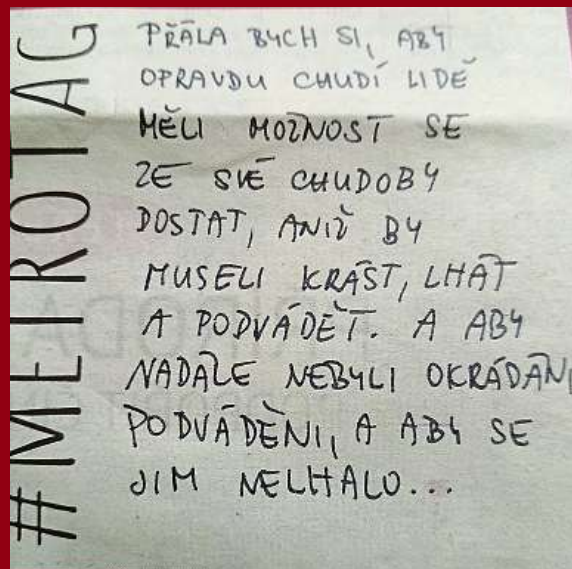 #MEIROTAG
PŘÁLA BYCH SI, ABY
OPRAVDU CHUDÍ LIDÉ
MĚLI MOŽNOST SE
ZE SVÉ CHUDOBY
DOSTAT, ANIŽ BY
MUSELI KRÁST, LHÁT
A PODVÁDĚT. A ABY
NADÁLE NEBYLI OKRÁDÁNI,
PODVÁDĚNI, A ABY SE
JIM NELHALO...